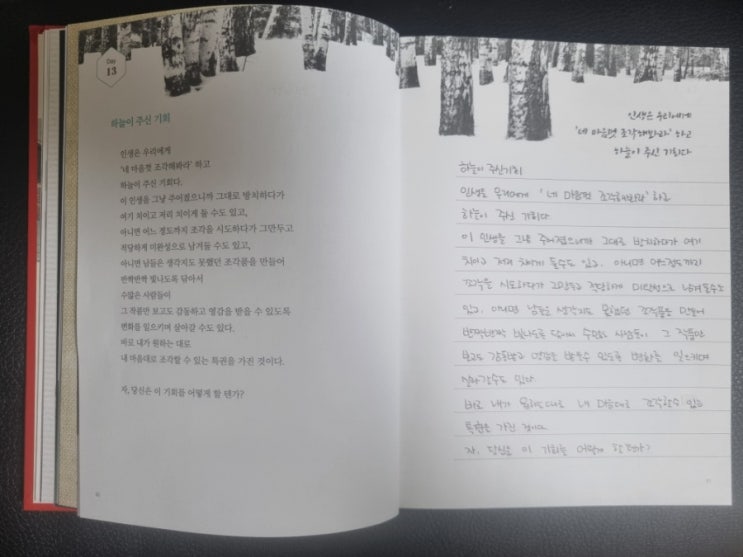 Day
13
하늘이 주신 기회
인생은 우리에게
'네 마음껏 조각해봐라' 하고
하늘이 주신 기회다.
이 인생을 그냥 주어졌으니까 그대로 방치하다가
여기 치이고 저리 치이게 둘 수도 있고,
아니면 어느 정도까지 조각을 시도하다가 그만두고
적당하게 미완성으로 남겨둘 수도 있고,
아니면 남들은 생각지도 못했던 조각품을 만들어
반짝반짝 빛나도록 닦아서
수많은 사람들이
그 작품만 보고도 감동하고 영감을 받을 수 있도록
변화를 일으키며 살아갈 수도 있다.
바로 내가 원하는 대로
내 마음대로 조각할 수 있는 특권을 가진 것이다.
자, 당신은 이 기회를 어떻게 할 텐가?
인생은 우리에게
'네 마음껏 조각해봐라' 하고
하늘이 주신 기회다
하늘이 주신기회
인생은 우리에게 '네 마음껏 조각해봐라' 하고
하늘이 주신 기회다
이 인생을 그냥 주어졌으니까 그대로 방치하다가 여기
치이고 저리 치이게 둘수도 있고, 아니면 어느정도까지
조각을 시도하다가 그만두고 적당하게 미완성으로 남겨둘수도
있고, 아니면 남들은 생각지도 못했던 조각품을 만들어
반짝반짝 빛나도록 닦아서 수많은 사람들이 그 작품만
보고도 감동하고 영감을 받을수 있도록 변화를 일으키며
살아갈수도 있다
바로 내가 원하는대로 내 마음대로 조각할수 있는
특권을 가진 것이다
자, 당신은 이 기회를 어떻게 할텐가?